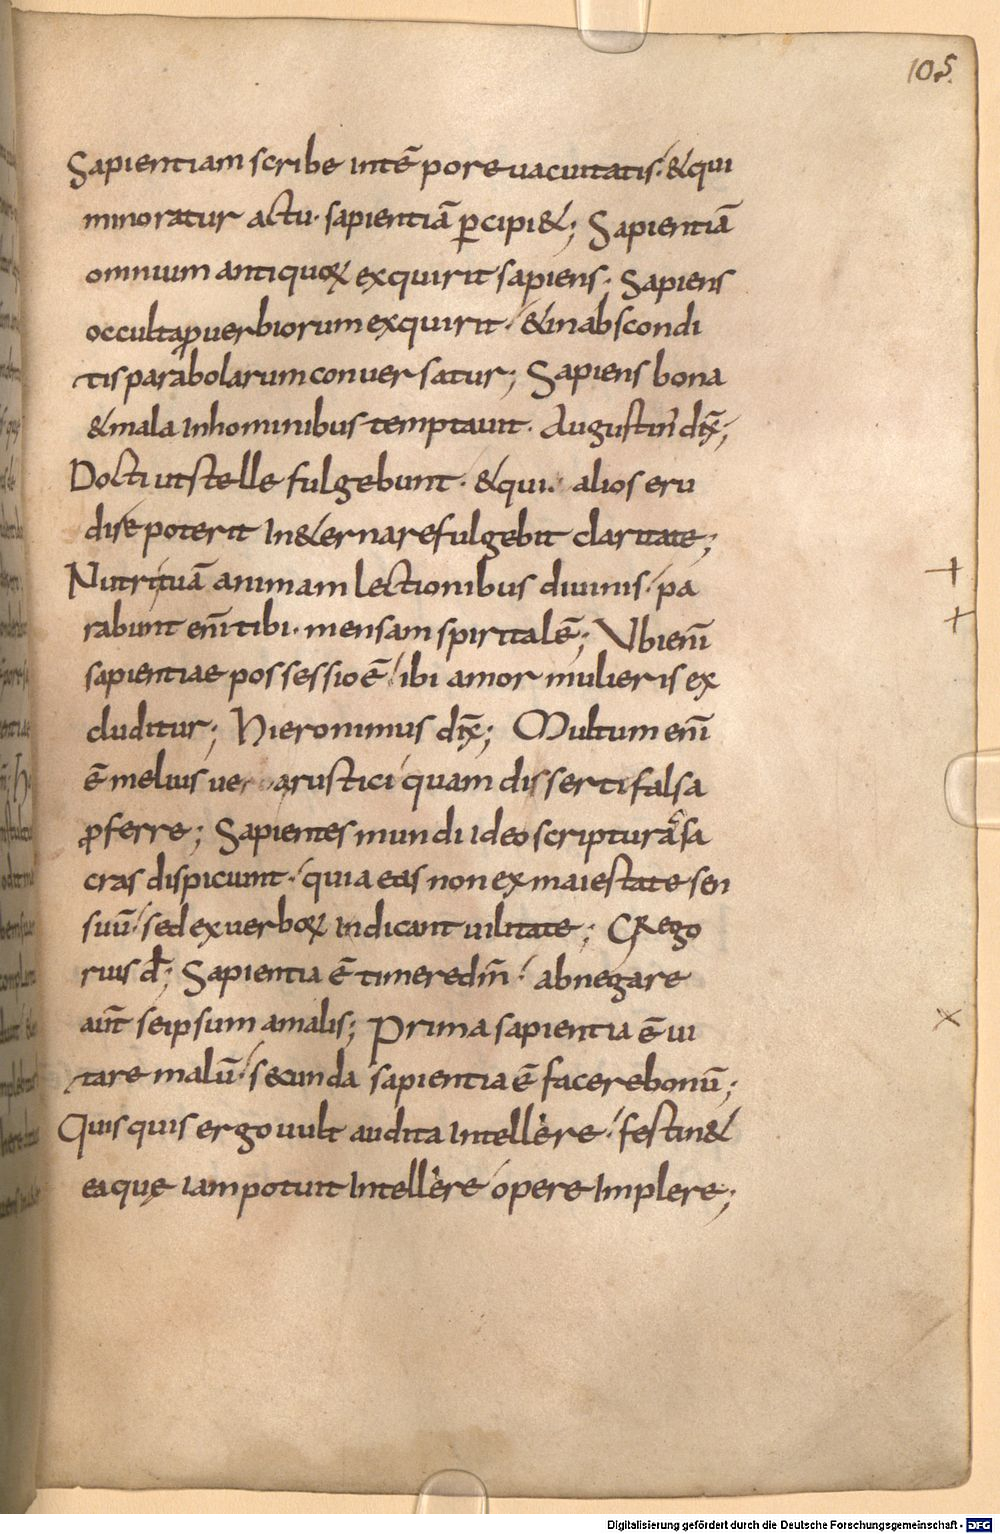 105.
Sapientiam scribe intē pore uacuitatis· &qui
minoratur actu· sapientiā ꝑcipi&; Sapientiā
omnium antiquoꝝ exquirit sapiens· Sapiens
occulta ꝓuerbiorum exquirit· &in abscondi
tis parabolarum conuersatur; Sapiens bona
&mala in hominibus temptauit· Augustin' dix̄;
Docti ut stelle fulgebunt· &qui alios eru
dire poterit In&erna refulgebit claritate;
Nutri tuā animam lectionibus diuinis· pa
rabunt enī tibi· mensam spiritalē; Vbi enī
sapientiae possessio ē· ibi amor mulieris ex
cluditur; Hieronimus dix̄; Multum enī
ē melius uera rustici quam disserti falsa
ꝓferre; Sapientes mundi ideo scripturas sa
cras dispiciunt· quia eas non ex maiestate sen
suū· sed ex uerboꝝ indicant uilitate; Grego
rius d̄; Sapientia ē timere dm̄· abnegare
aūt se ipsum a malis; Prima sapientia ē ui
tare malū· secunda sapientia ē facere bonū;
Quisquis ergo uult audita intellere· festin&
ea quę iam potuit intellere opere implere;
Digitalisierung gefördert durch die Deutsche Forschungsgemeinschaft - DFG